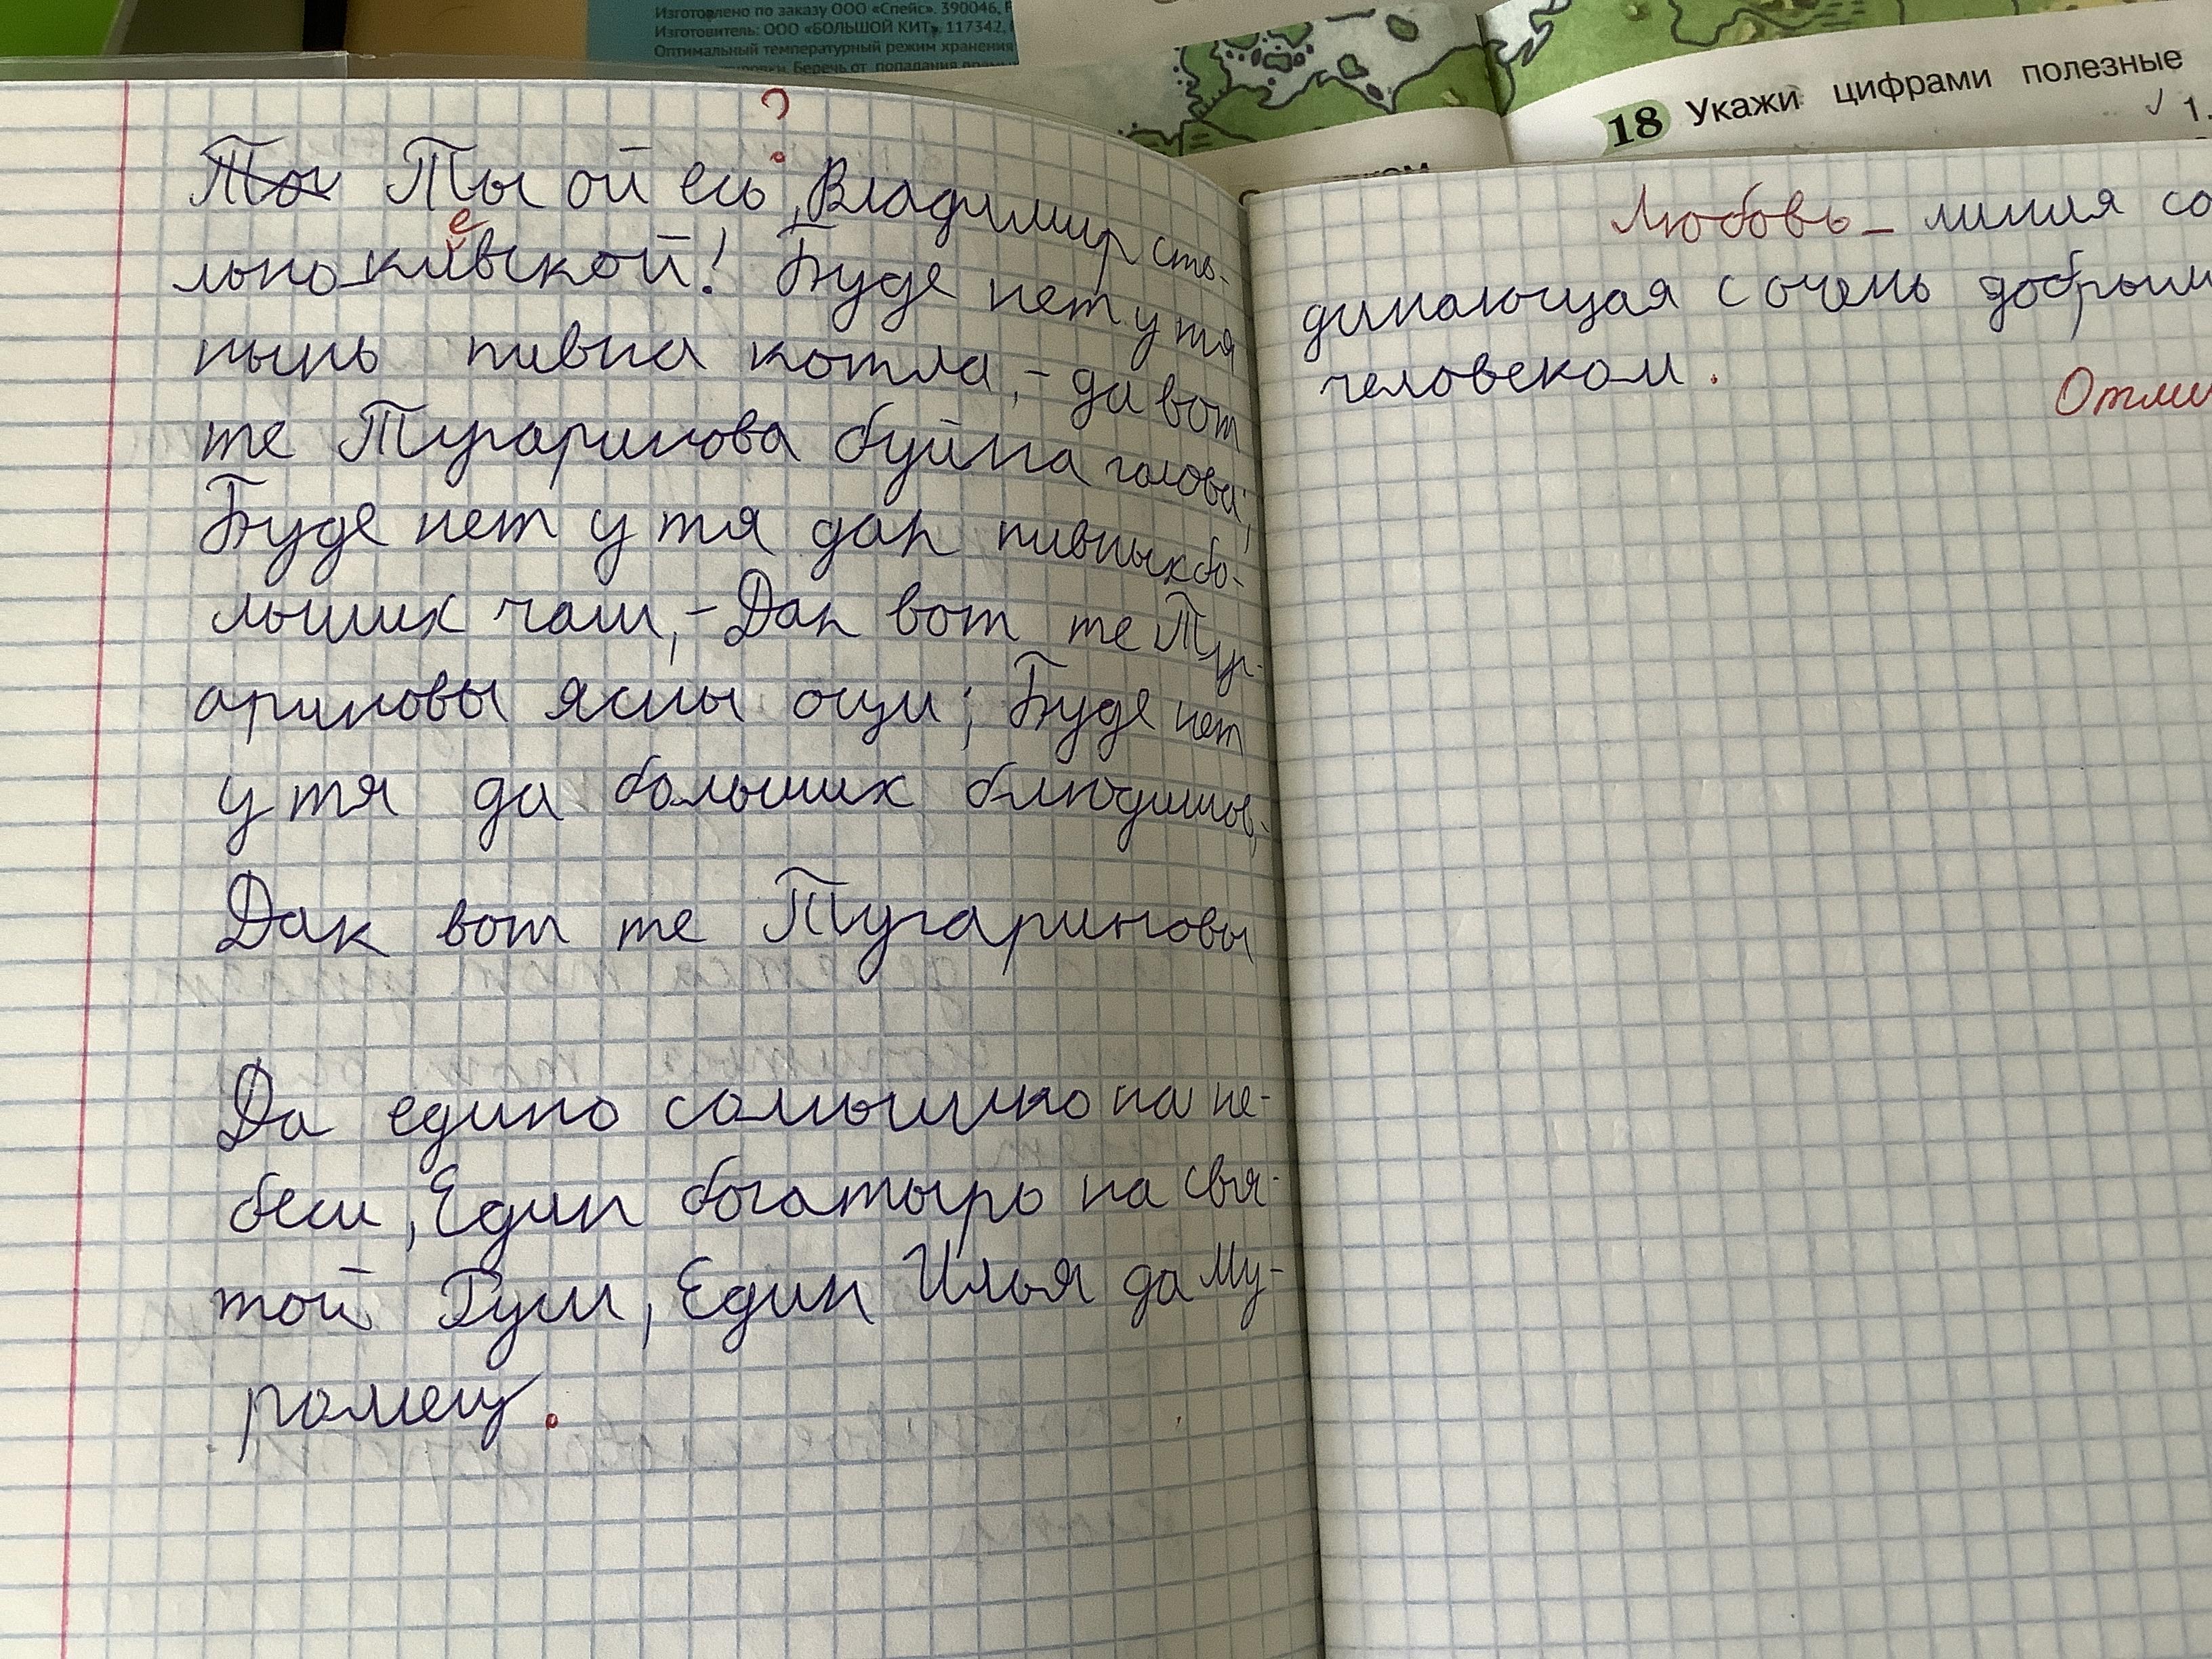 Изготовлено по заказу ООО «Спейс». 390046,
Изготовитель: ООО «БОЛЬШОЙ КИТ», 117342,
Оптимальный температурный режим хранения
Беречь от попадания
18 Укажи цифрами полезные
1.
?
Ты ой есь, Владимир сть-
е
льно-кивской! Буде нет у тя
нынь пивна котла, - да вот
те Тугаринова буйна голова;
Буде нет у тя дак пивных бо-
льших чаш, - Дак вот те Туг-
ариновы ясны очи; Буде нет
у тя да больших блюдищов, -
Дак вот те Тугариновы
Да едино солнышко на не-
беси, Един богатырь на свя-
той Руси, Един Илья да Му-
ромец.
Любовь - линия со
динающая с очень добрым
человеком.
Отли